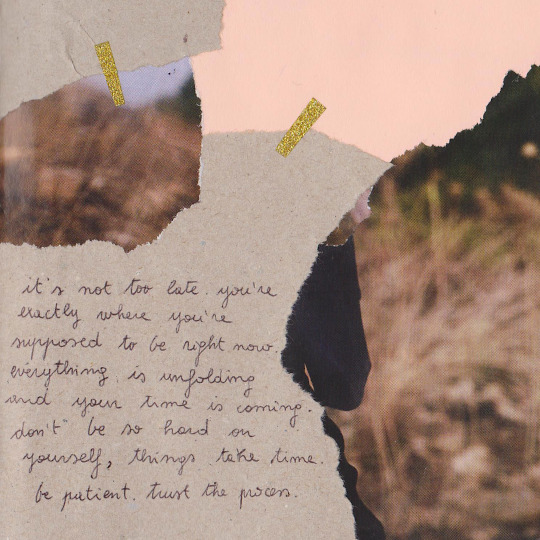 it's not too late. you're
exactly where you're
supposed to be right now.
everything is unfolding
and your time is coming.
don't be so hard on
yourself, things take time.
be patient. trust the process.